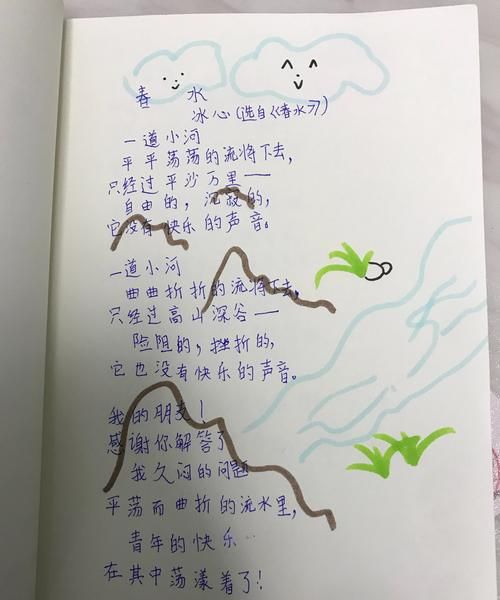 春 水
冰心(选自《春水》)
一道小河
平平荡荡的流将下去,
只经过平沙万里——
自由的,沉寂的,
它没有快乐的声音。
一道小河
曲曲折折的流将下去,
只经过高山深谷——
险阻的,挫折的,
它也没有快乐的声音。
我的朋友!
感谢你解答了
我久闷的问题
平荡而曲折的流水里,
青年的快乐
在其中荡漾着了!